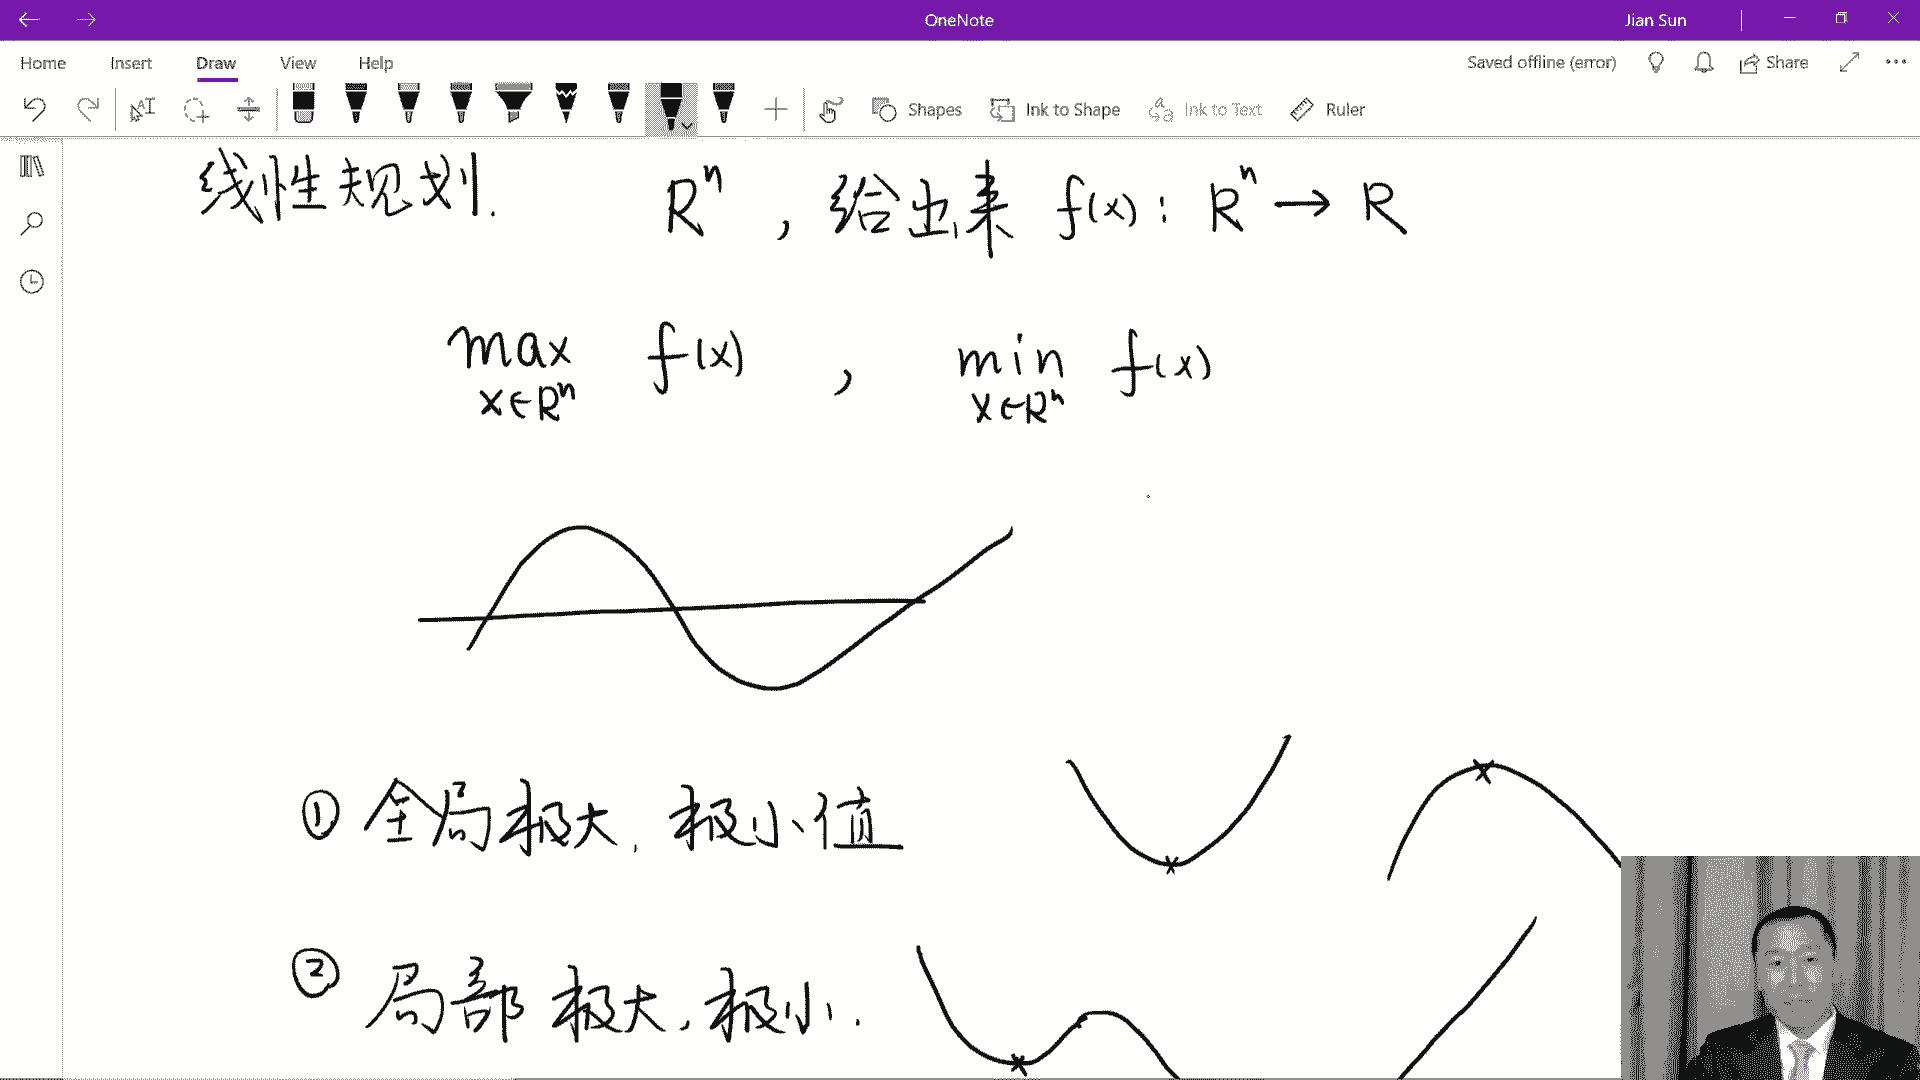 OneNote
Jian Sun
Home Insert Draw View Help
Saved offline (error) Share
Shapes Ink to Shape Ink to Text Ruler
线性规划. Rⁿ , 给出来 f(x): Rⁿ → R
max f(x) , min f(x)
x∈Rⁿ x∈Rⁿ
① 全局极大, 极小值
② 局部极大, 极小.